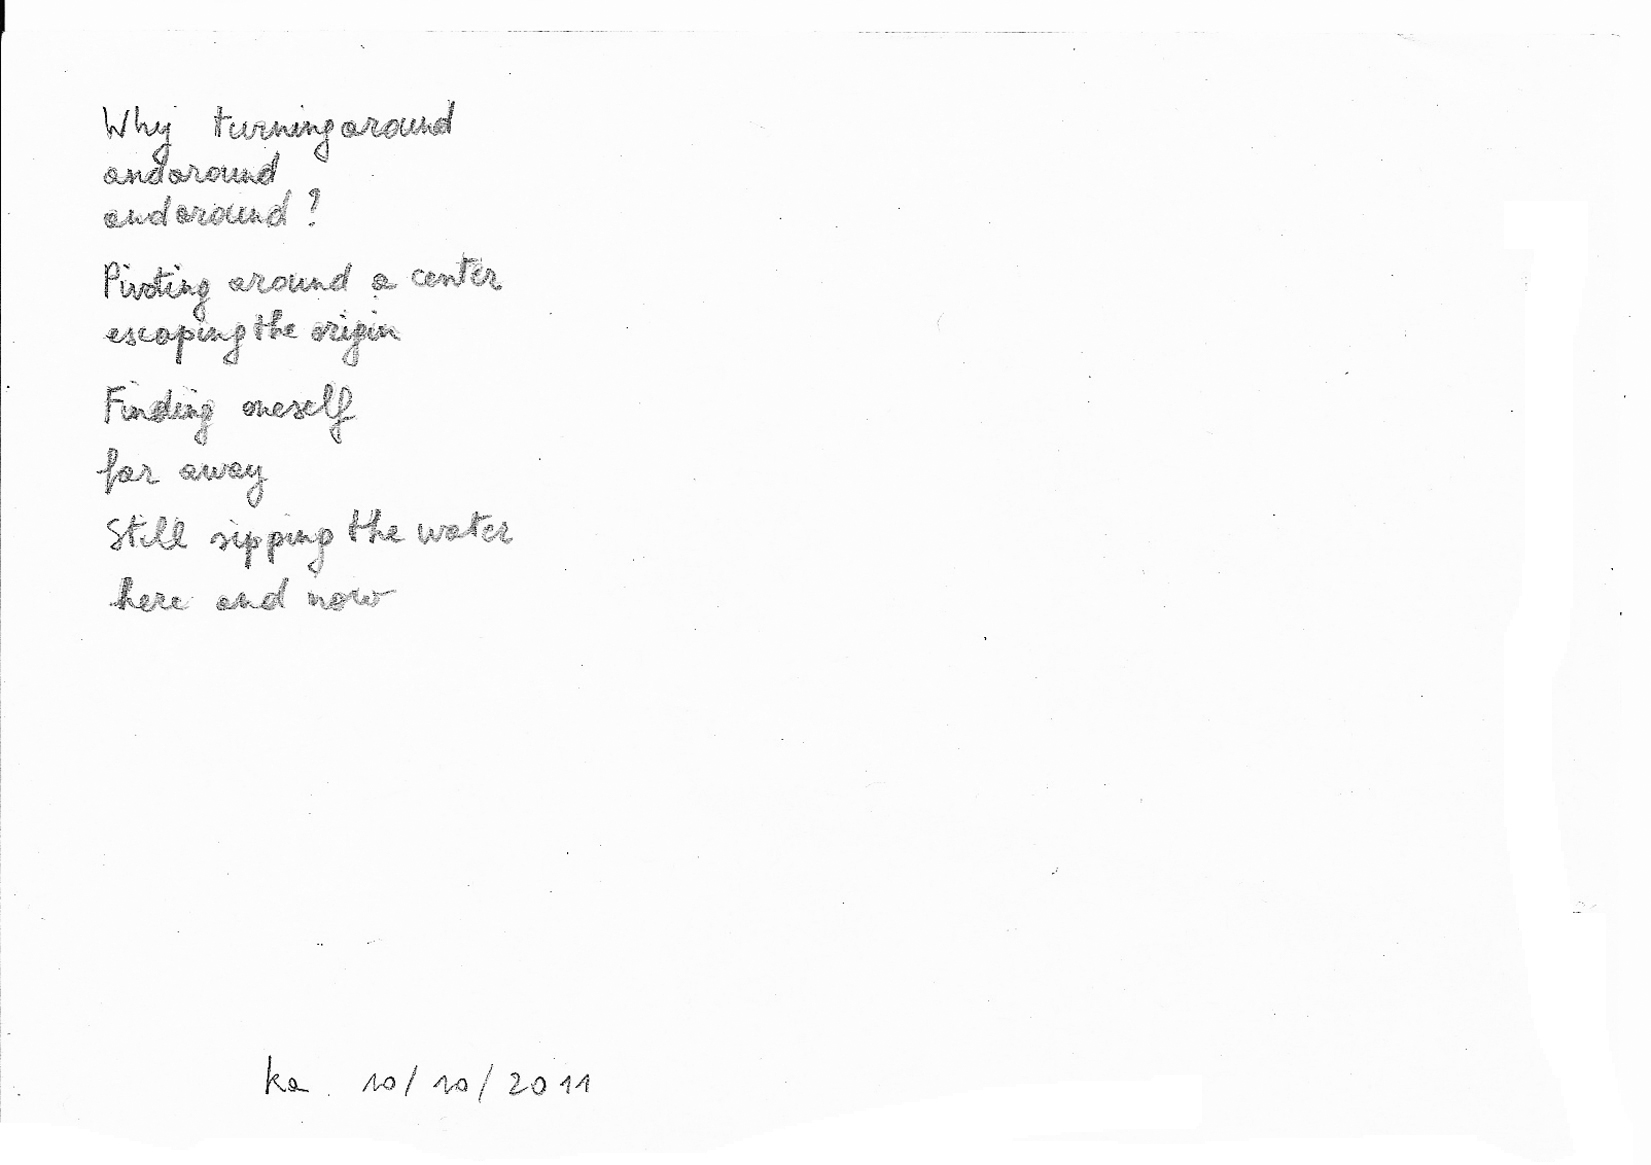 Why turningaround
andaround
andaround?
Pivoting around a center
escaping the origin
Finding oneself
far away
Still sipping the water
here and now
ka. 10/10/2011